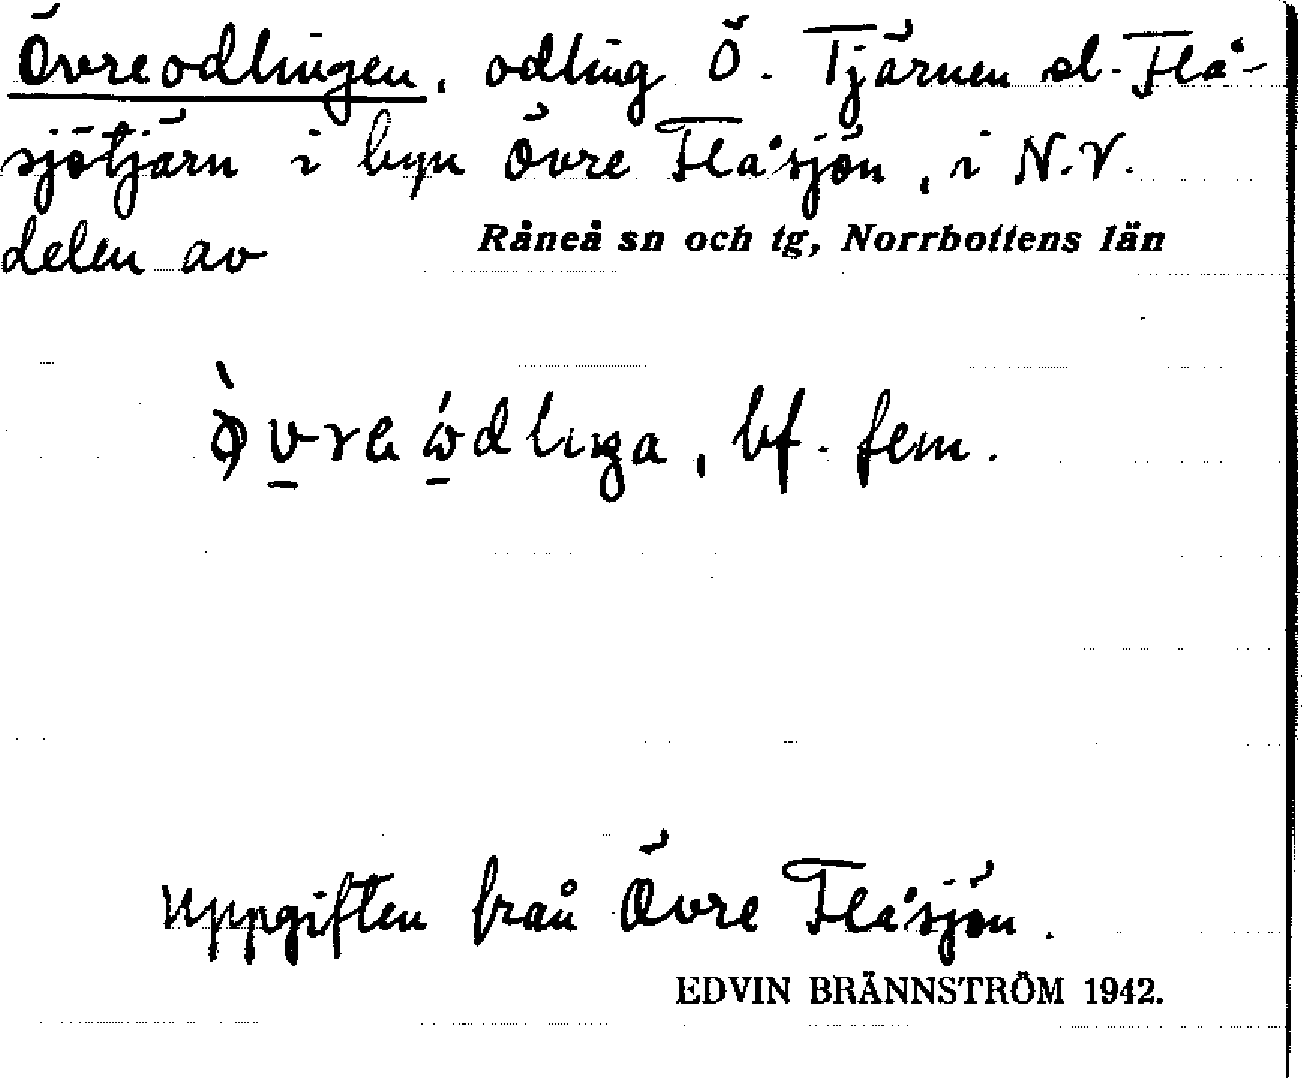 Övreodlingen, odling Ö. Tjärnen el. Flå-
sjötjärn i byn Övre Flåsjön, i N.V.
delen av Råneå sn och tg, Norrbottens län
bf. fem.
Uppgiften från Övre Flåsjön.
EDVIN BRÄNNSTRÖM 1942.